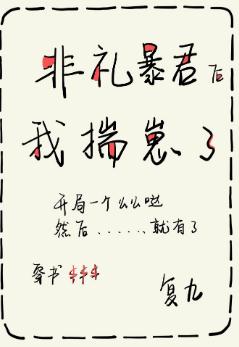 非礼暴君后
我揣崽了
开局一个么么哒
然后......就有了
穿书
复九